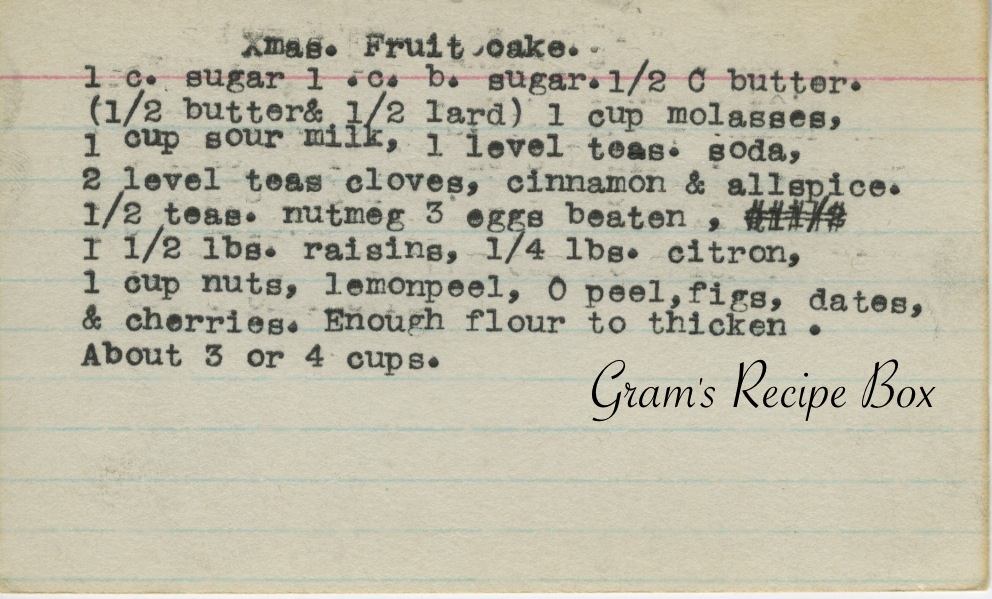 Xmas. Fruit cake.
1 c. sugar 1 .c. b. sugar. 1/2 C butter.
(1/2 butter& 1/2 lard) 1 cup molasses,
1 cup sour milk, 1 level teas. soda,
2 level teas cloves, cinnamon & allspice.
1/2 teas. nutmeg 3 eggs beaten ,
1 1/2 lbs. raisins, 1/4 lbs. citron,
1 cup nuts, lemonpeel, O peel,figs, dates,
& cherries. Enough flour to thicken .
About 3 or 4 cups.
Gram's Recipe Box